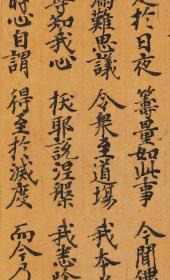 於日夜 籌量如此事 今聞佛
漏難思議 令衆至道場 我本
尊知我心 拔耶説涅槃 我悉除
時心自謂 得至於滅度 而今乃